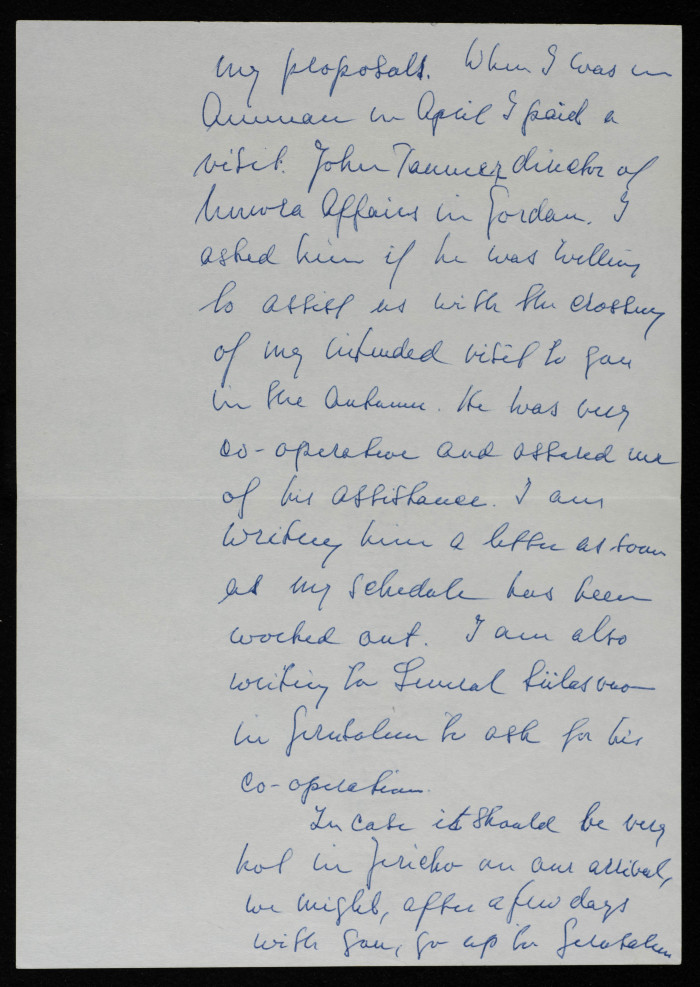 my proposals. When I was in
Amman in April I paid a
visit. John Tanner director of
Unwra Affairs in Jordan. I
asked him if he was willing
to assist us with the crossing
of my intended visit to you
in the Autumn. He was very
co-operative and assured me
of his assistance. I am
writing him a letter as soon
as my schedule has been
worked out. I am also
writing to General Siilasvuo
in Jerusalem to ask for his
co-operation.
In case it should be very
hot in Jericho on our arrival,
we might, after a few days
with you, go up to Jerusalem